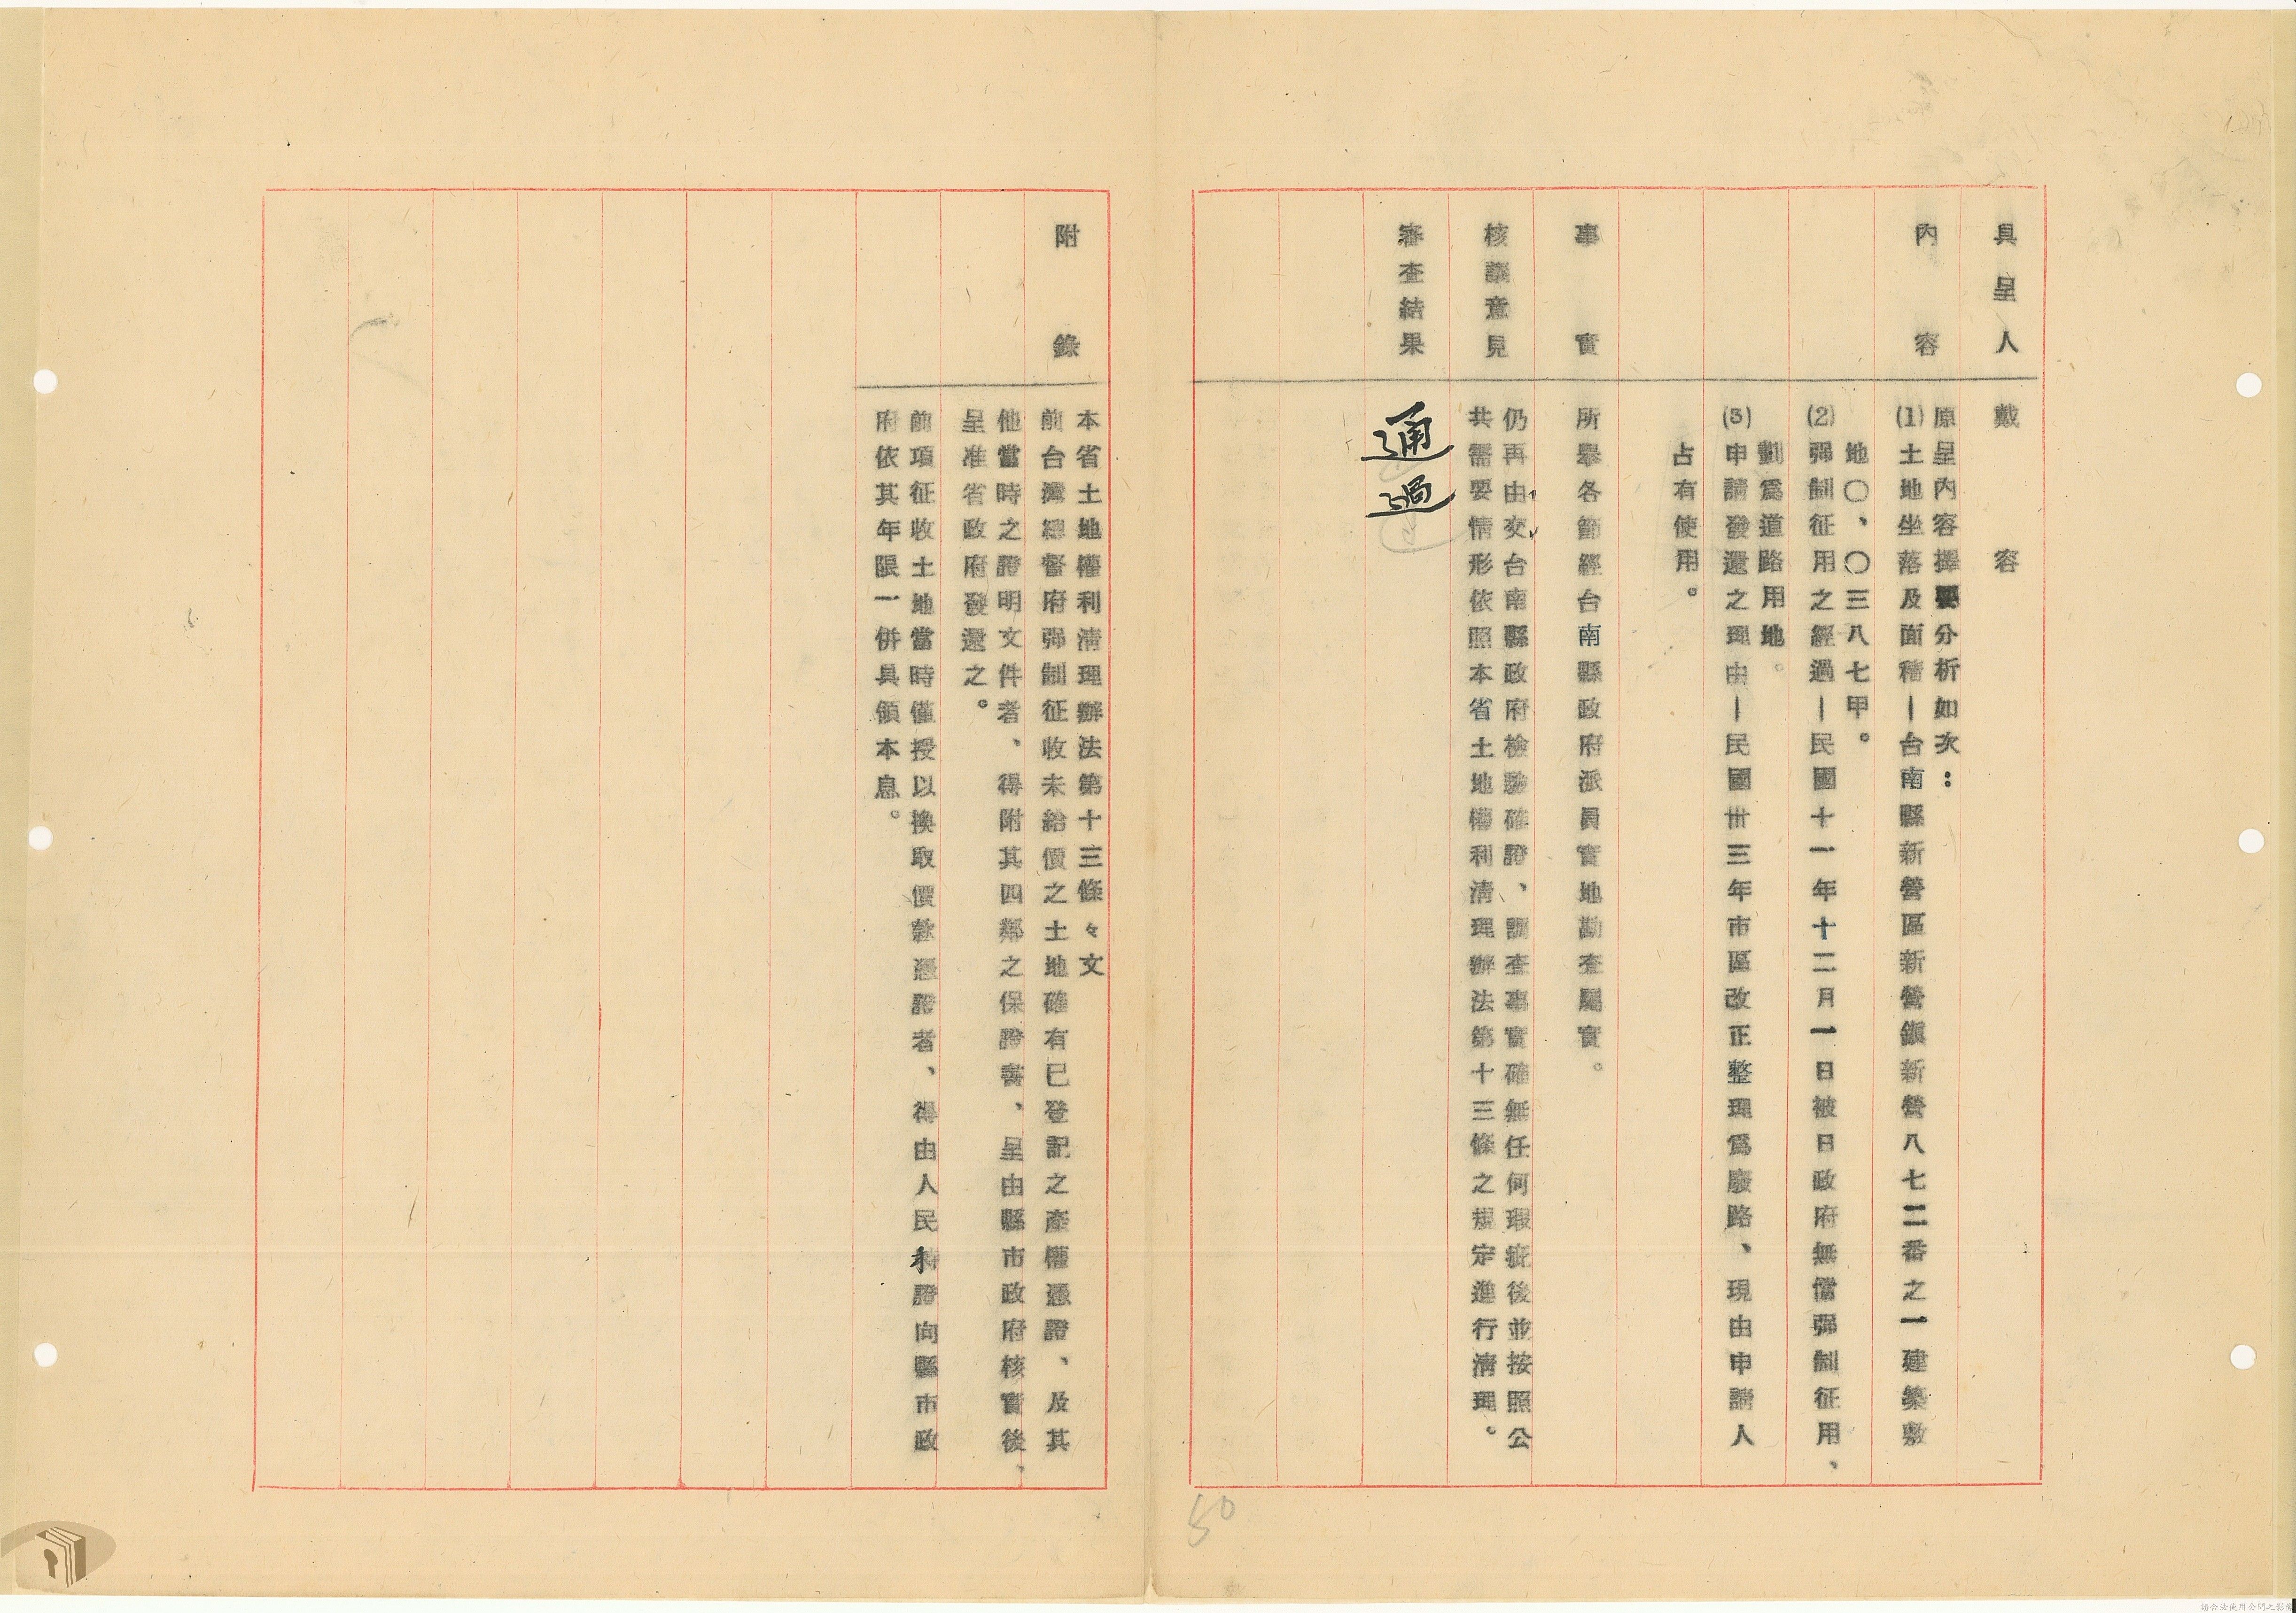 具呈人　戴　容
內容　原呈內容擇要分析如次：
(1)土地坐落及面積—台南縣新營區新營鎮新營八七二番之一建築敷
地〇、〇三八七甲。
(2)彊制征用之經過—民國十一年十二月一日被日政府無償彊制征用、
劃爲道路用地。
(3)申請發還之理由—民國卅三年市區改正整理爲廢路、現由申請人
占有使用。
事實　所舉各節經台南縣政府派員實地勘查屬實。
核議意見　仍再由交台南縣政府檢驗確證、調查事實確無任何瑕疵後並按照公
共需要情形依照本省土地權利清理辦法第十三條之規定進行清理。
審查結果　通過
附錄　本省土地權利清理辦法第十三條々文
前台灣總督府彊制征收未給價之土地確有已登記之產權憑證、及其
他當時之證明文件者、得附其四鄰之保證書、呈由縣市政府核實後、
呈准省政府發還之。
前項征收土地當時僅授以換取價款憑證者、得由人民持證向縣市政
府依其年限一併具領本息。
50
請合法使用公開之影像